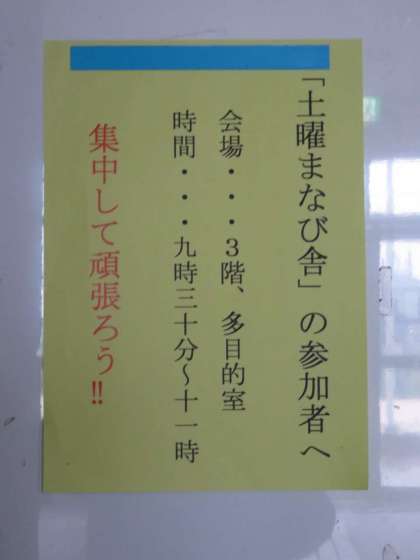 「土曜まなび舎」の参加者へ
会場・・・3階、多目的室
時間・・・九時三十分～十一時
集中して頑張ろう!!